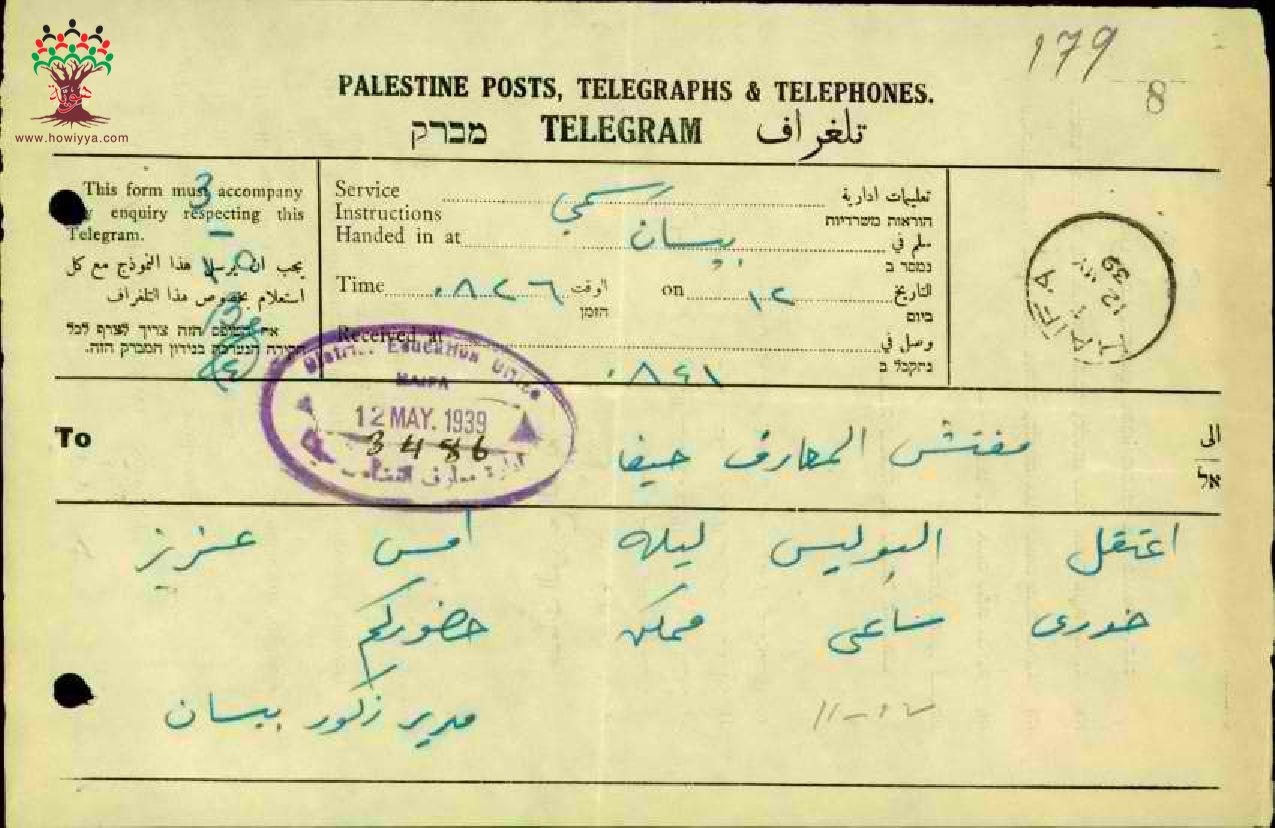 179
8
www.howiyya.com
PALESTINE POSTS, TELEGRAPHS & TELEPHONES.
מברק TELEGRAM تلغراف
This form must accompany
enquiry respecting this
Telegram.
يجب ان يرسل هذا النموذج مع كل
استعلام بخصوص هذا التلغراف
הזה צריך לצרף לכל
חקירה הנערכת בנידון המברק הזה.
3
Service Instructions رسمي تعليمات ادارية
הוראות משרדיות
Handed in at بيسان سلم في
נמסר ב
Time ٠٨٢٦ الوقت on ١٢ التاريخ
הזמן ביום
Received at ٠٨٤١ وصل في
נתקבל ב
HAIFA
12 MY
39
District Education Office
HAIFA
12 MAY. 1939
3486
To مفتش المعارف حيفا الى
אל
اعتقل البوليس ليلة امس عزيز
خوري ساعي ممكن حضوركم
مدير ذكور بيسان